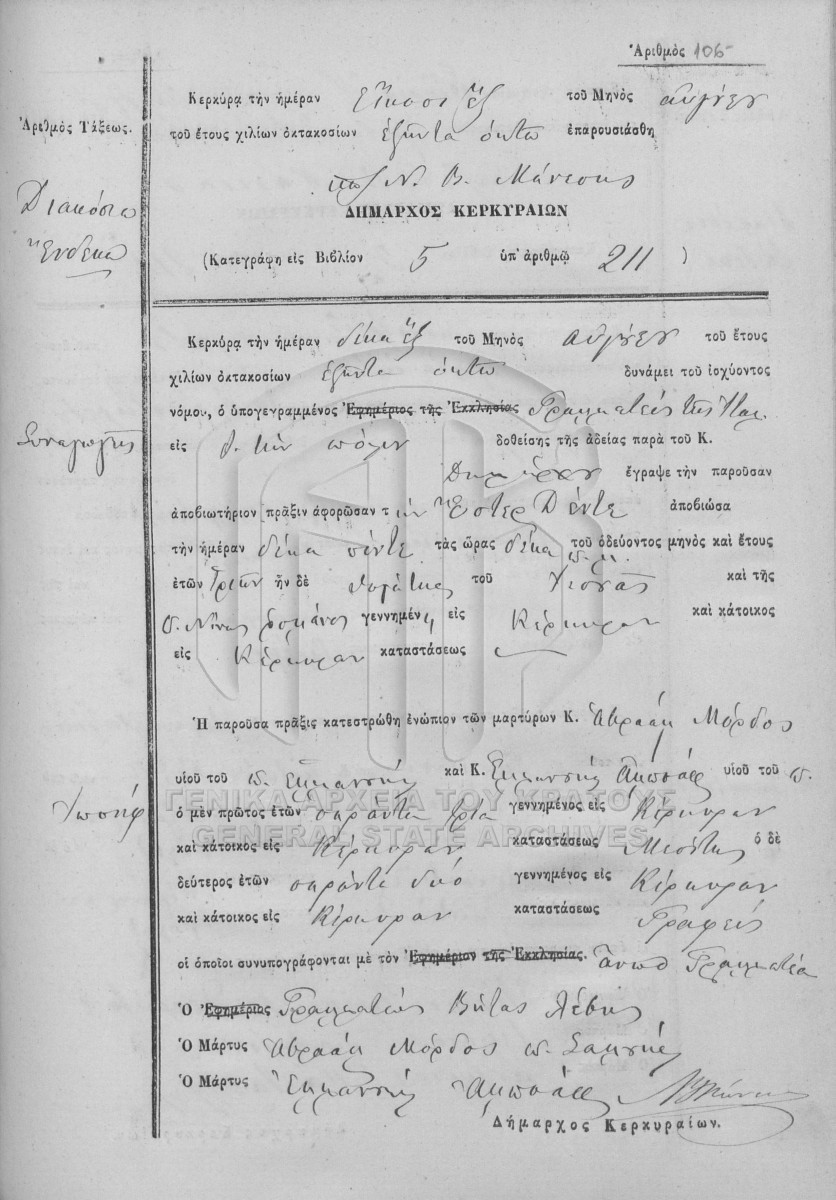 Ἀριθμὸς 106
Κερκύρα τὴν ἡμέραν Εἴκοσι ἕξ τοῦ Μηνὸς
Ἀριθμὸς Τάξεως.
τοῦ ἔτους χιλίων ὀκτακοσίων ἑξῆντα ὀκτὼ ἐπαρουσιάσθη
Ν. Β. Μάνεσης
Διακόσια
ΔΗΜΑΡΧΟΣ ΚΕΡΚΥΡΑΙΩΝ
Ἕνδεκα
(Κατεγράφη εἰς Βιβλίον 5 ὑπ' ἀριθμῷ 211 )
Κερκύρα τὴν ἡμέραν δέκα ἕξ τοῦ Μηνὸς τοῦ ἔτους
χιλίων ὀκτακοσίων ἑξῆντα ὀκτὼ δυνάμει τοῦ ἰσχύοντος
νόμου, ὁ ὑπογεγραμμένος Ἐφημέριος τῆς Ἐκκλησίας Γραμματεὺς τῆς
Συναγωγῆς
εἰς τὴν πόλιν δοθείσης τῆς ἀδείας παρὰ τοῦ Κ.
Δημάρχου ἔγραψε τὴν παροῦσαν
ἀποβιωτήριον πρᾶξιν ἀφορῶσαν τὴν Ἕστερ Δέντε ἀποβιώσα
τὴν ἡμέραν δέκα πέντε τὰς ὥρας δέκα π. μ. τοῦ ὁδεύοντος μηνὸς καὶ ἔτους
ἐτῶν τριῶν ἦν δὲ θυγάτηρ τοῦ καὶ τῆς
Νίνας γεννημένη εἰς Κέρκυραν καὶ κάτοικος
εἰς Κέρκυραν καταστάσεως
Ἡ παροῦσα πρᾶξις κατεστρώθη ἐνώπιον τῶν μαρτύρων Κ. Ἀβραὰμ Μόρδος
υἱοῦ τοῦ π. καὶ Κ. υἱοῦ τοῦ π.
Ἰωσὴφ
ΓΕΝΙΚΑ ΑΡΧΕΙΑ ΤΟΥ ΚΡΑΤΟΥΣ
ὁ μὲν πρῶτος ἐτῶν σαράντα τρία γεννημένος εἰς Κέρκυραν
GENERAL STATE ARCHIVES
καὶ κάτοικος εἰς Κέρκυραν καταστάσεως Μεσίτης ὁ δὲ
δεύτερος ἐτῶν σαράντα δύο γεννημένος εἰς Κέρκυραν
καὶ κάτοικος εἰς Κέρκυραν καταστάσεως Γραφεὺς
οἱ ὁποῖοι συνυπογράφονται μὲ τὸν Ἐφημέριον τῆς Ἐκκλησίας. ἄνωθ Γραμματέα
Ὁ Ἐφημέριος Γραμματεὺς Βήτας Λέβης
Ὁ Μάρτυς Ἀβραὰμ Μόρδος π.
Ὁ Μάρτυς
Δήμαρχος Κερκυραίων.